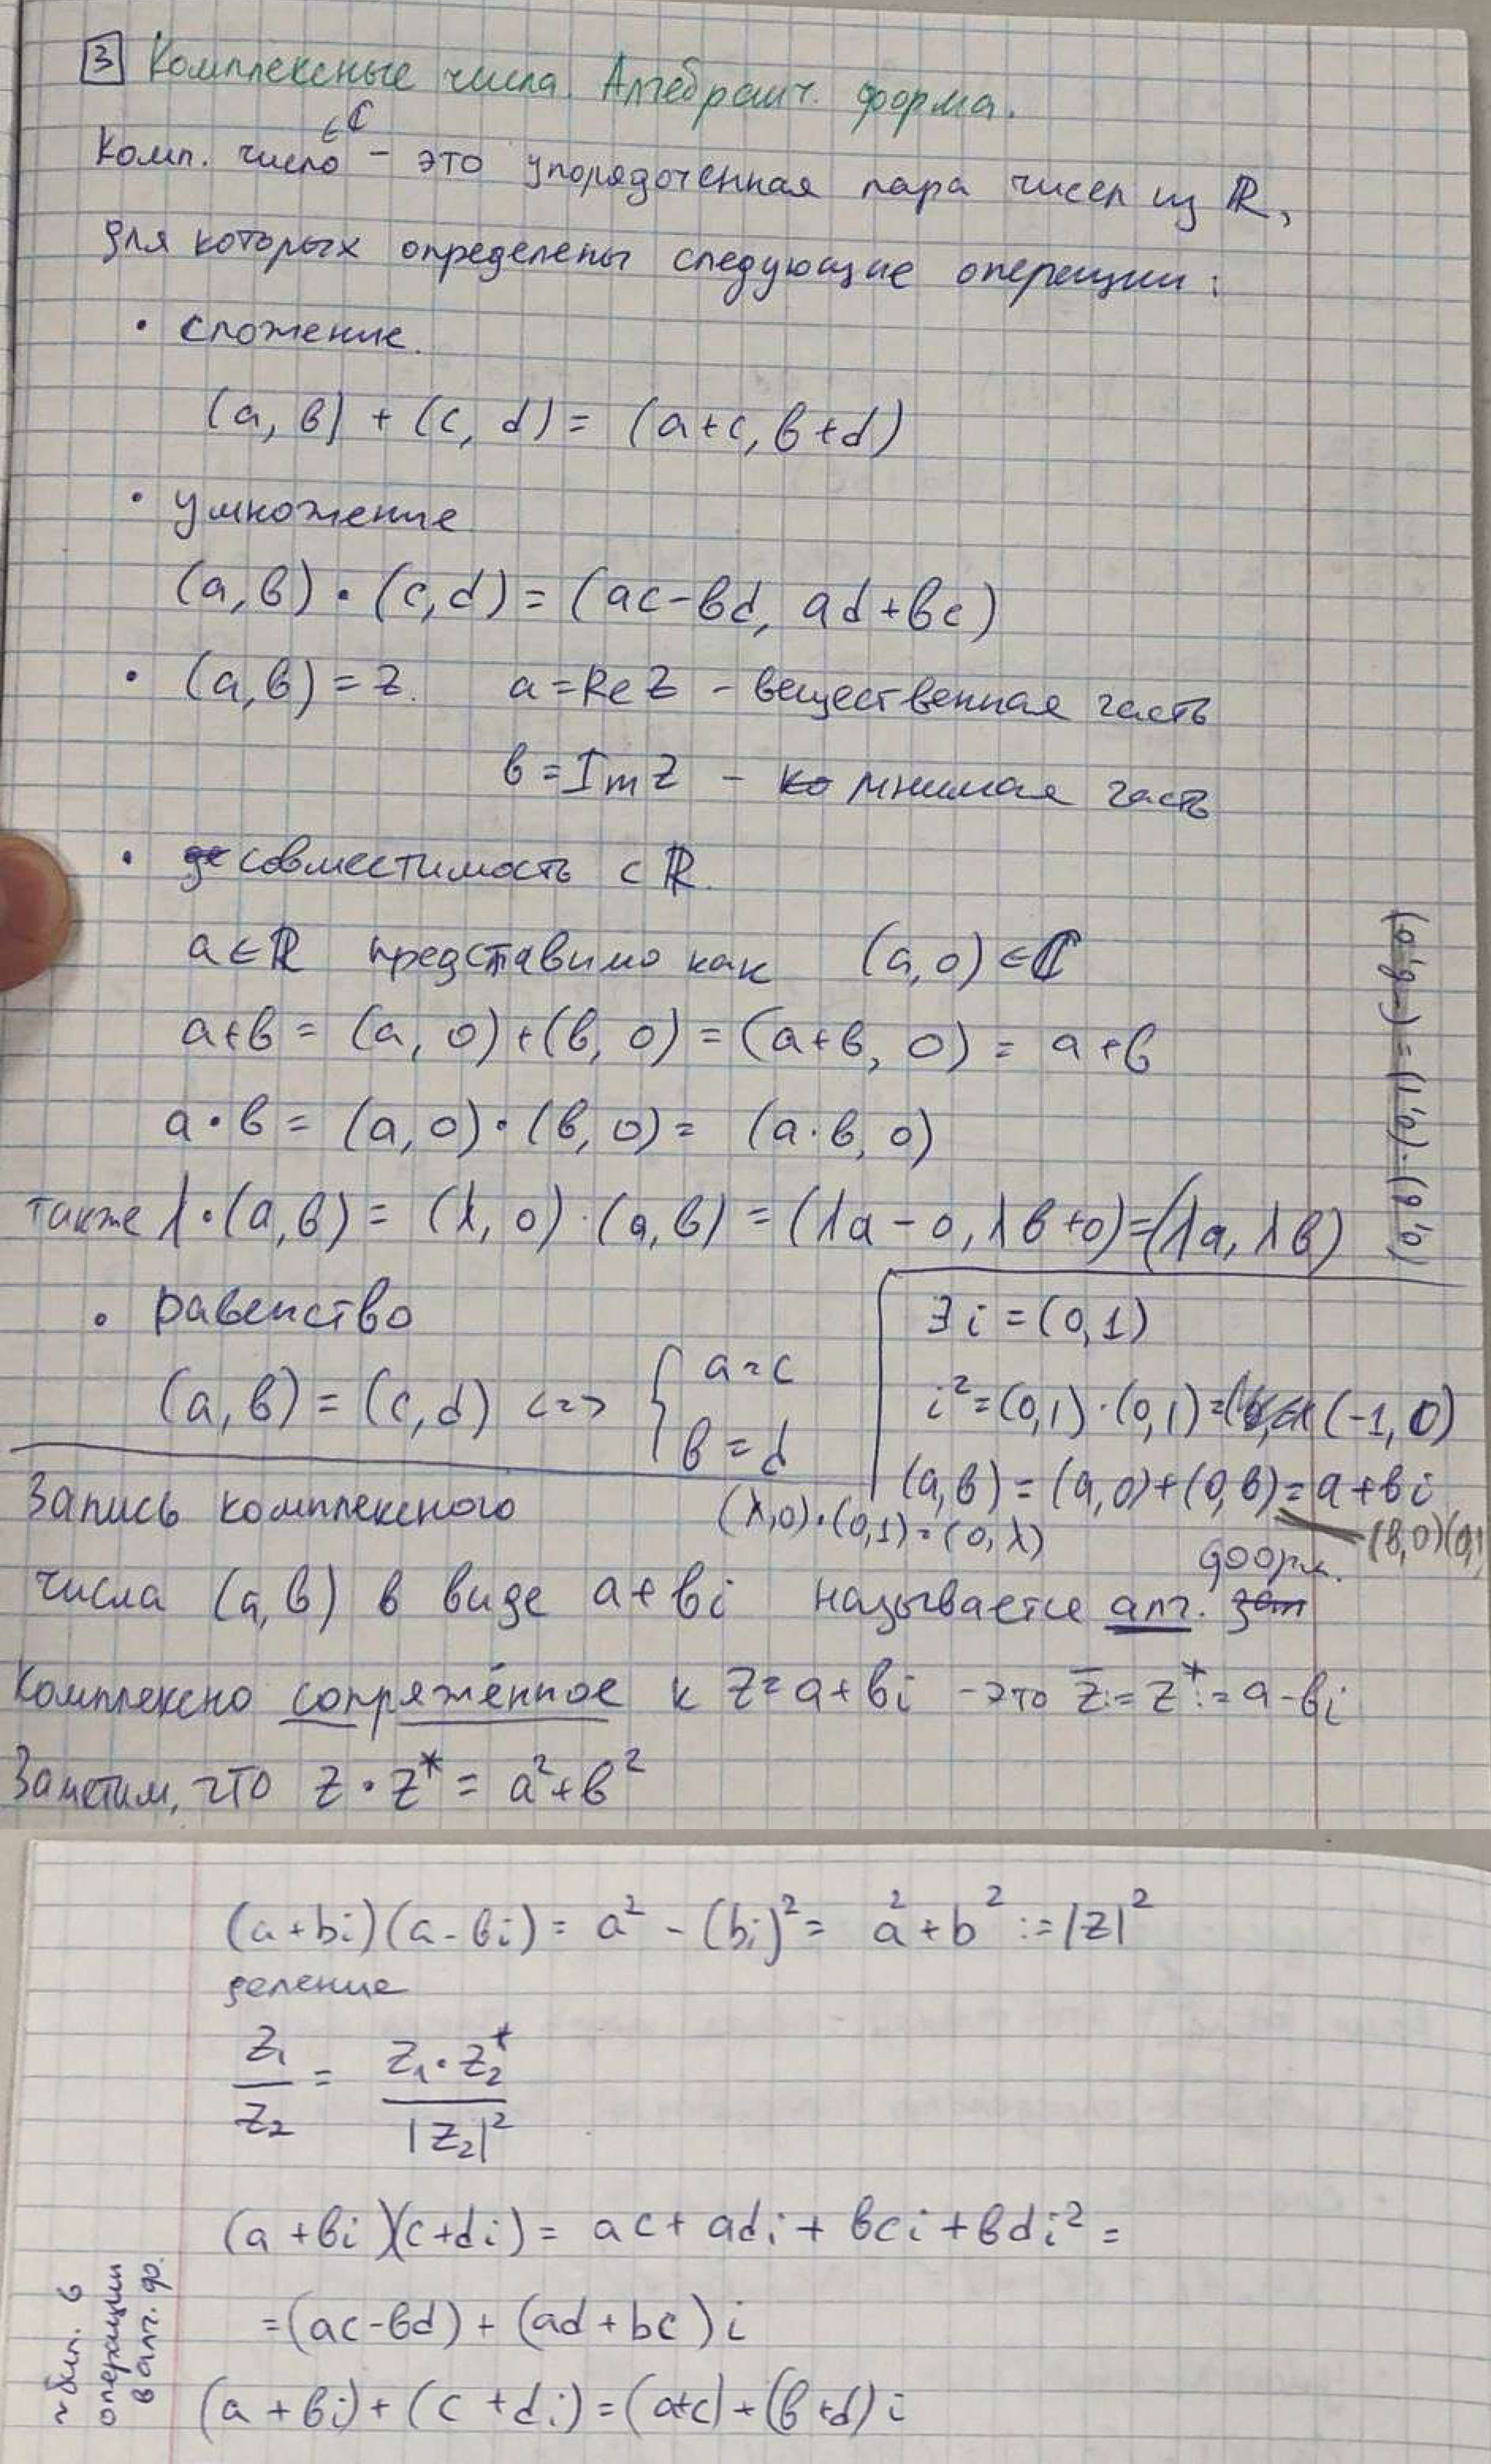 3 Комплексные числа. Алгебраич. форма.
∈ ℂ
Комп. число – это упорядоченная пара чисел из ℝ,
для которых определены следующие операции:
• сложение.
(a, b) + (c, d) = (a+c, b+d)
• умножение
(a, b) • (c, d) = (ac-bd, ad+bc)
• (a, b) = z. a = Re z – вещественная часть
b = Im z – мнимая часть
• совместимость с ℝ.
a ∈ ℝ представимо как (a, 0) ∈ ℂ
a+b = (a, 0)+(b, 0) = (a+b, 0) = a+b
a•b = (a, 0)•(b, 0) = (a·b, 0)
также λ•(a, b) = (λ, 0)·(a, b) = (λa - 0, λb+0) = (λa, λb)
(0, b)·(0, 1) = (-b, 0)
• равенство
(a, b) = (c, d) <=> { a = c
b = d
∃ i = (0, 1)
i² = (0, 1)·(0, 1) = (-1, 0)
(a, b) = (a, 0)+(0, b) = a+bi
(b, 0)(0, 1
(λ, 0)•(0, 1) = (0, λ)
Запись комплексного
числа (a, b) в виде a+bi называется алг. форм.
Комплексно сопряжённое к z = a+bi – это z̄ := z* := a-bi
Заметим, что z • z* = a²+b²
(a+bi)(a-bi) = a² - (bi)² = a²+b² := |z|²
деление
z₁/z₂ = z₁•z₂*/|z₂|²
(a+bi)(c+di) = ac+adi+bci+bdi² =
= (ac-bd) + (ad+bc)i
(a+bi)+(c+di) = (a+c)+(b+d)i
операции
в алг. ф.